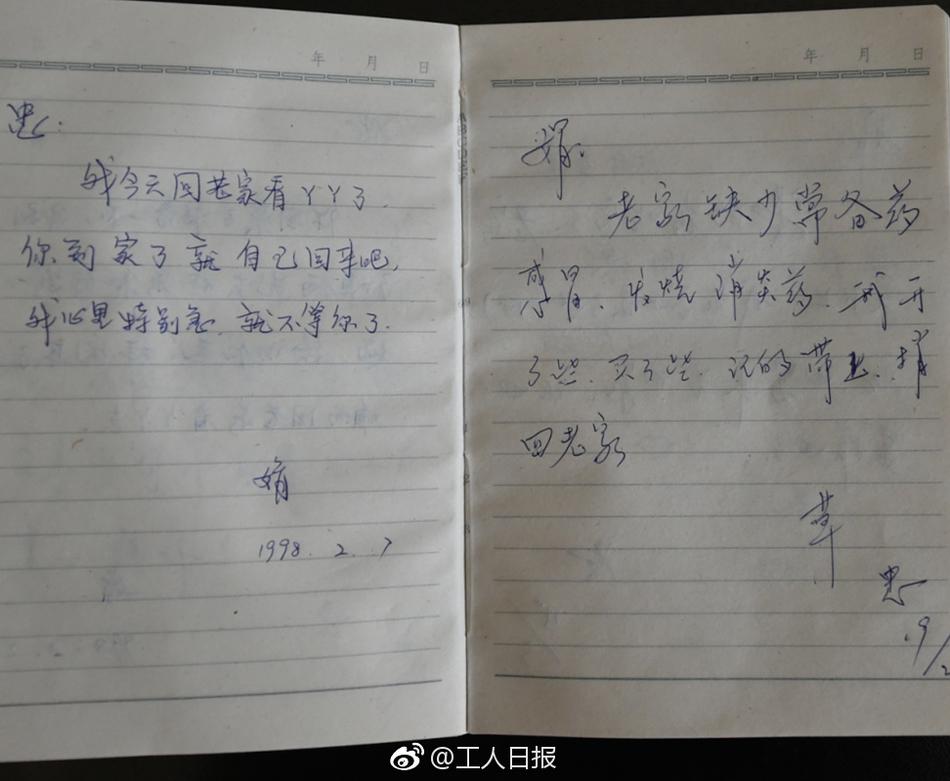 年 月 日
忠:
我今天回老家看丫丫了.
你到家了就自己回来吧,
我心里特别急,就不等你了.
娟
1998.2.7
年 月 日
娟:
老家缺少常备药
感冒、发烧消炎药.我开
了些.买了些.记的带上.捎
回老家
忠
9/2
@工人日报